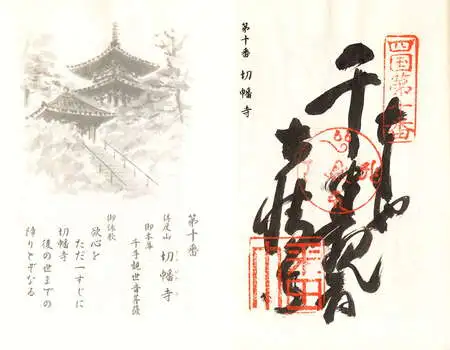 四国第十番
千手観音
第十番 切幡寺
第十番
得度山 切幡寺
御本尊
千手観世音菩薩
御詠歌
欲心を
ただ一すじに
切幡寺
後の世までの
障りとぞなる